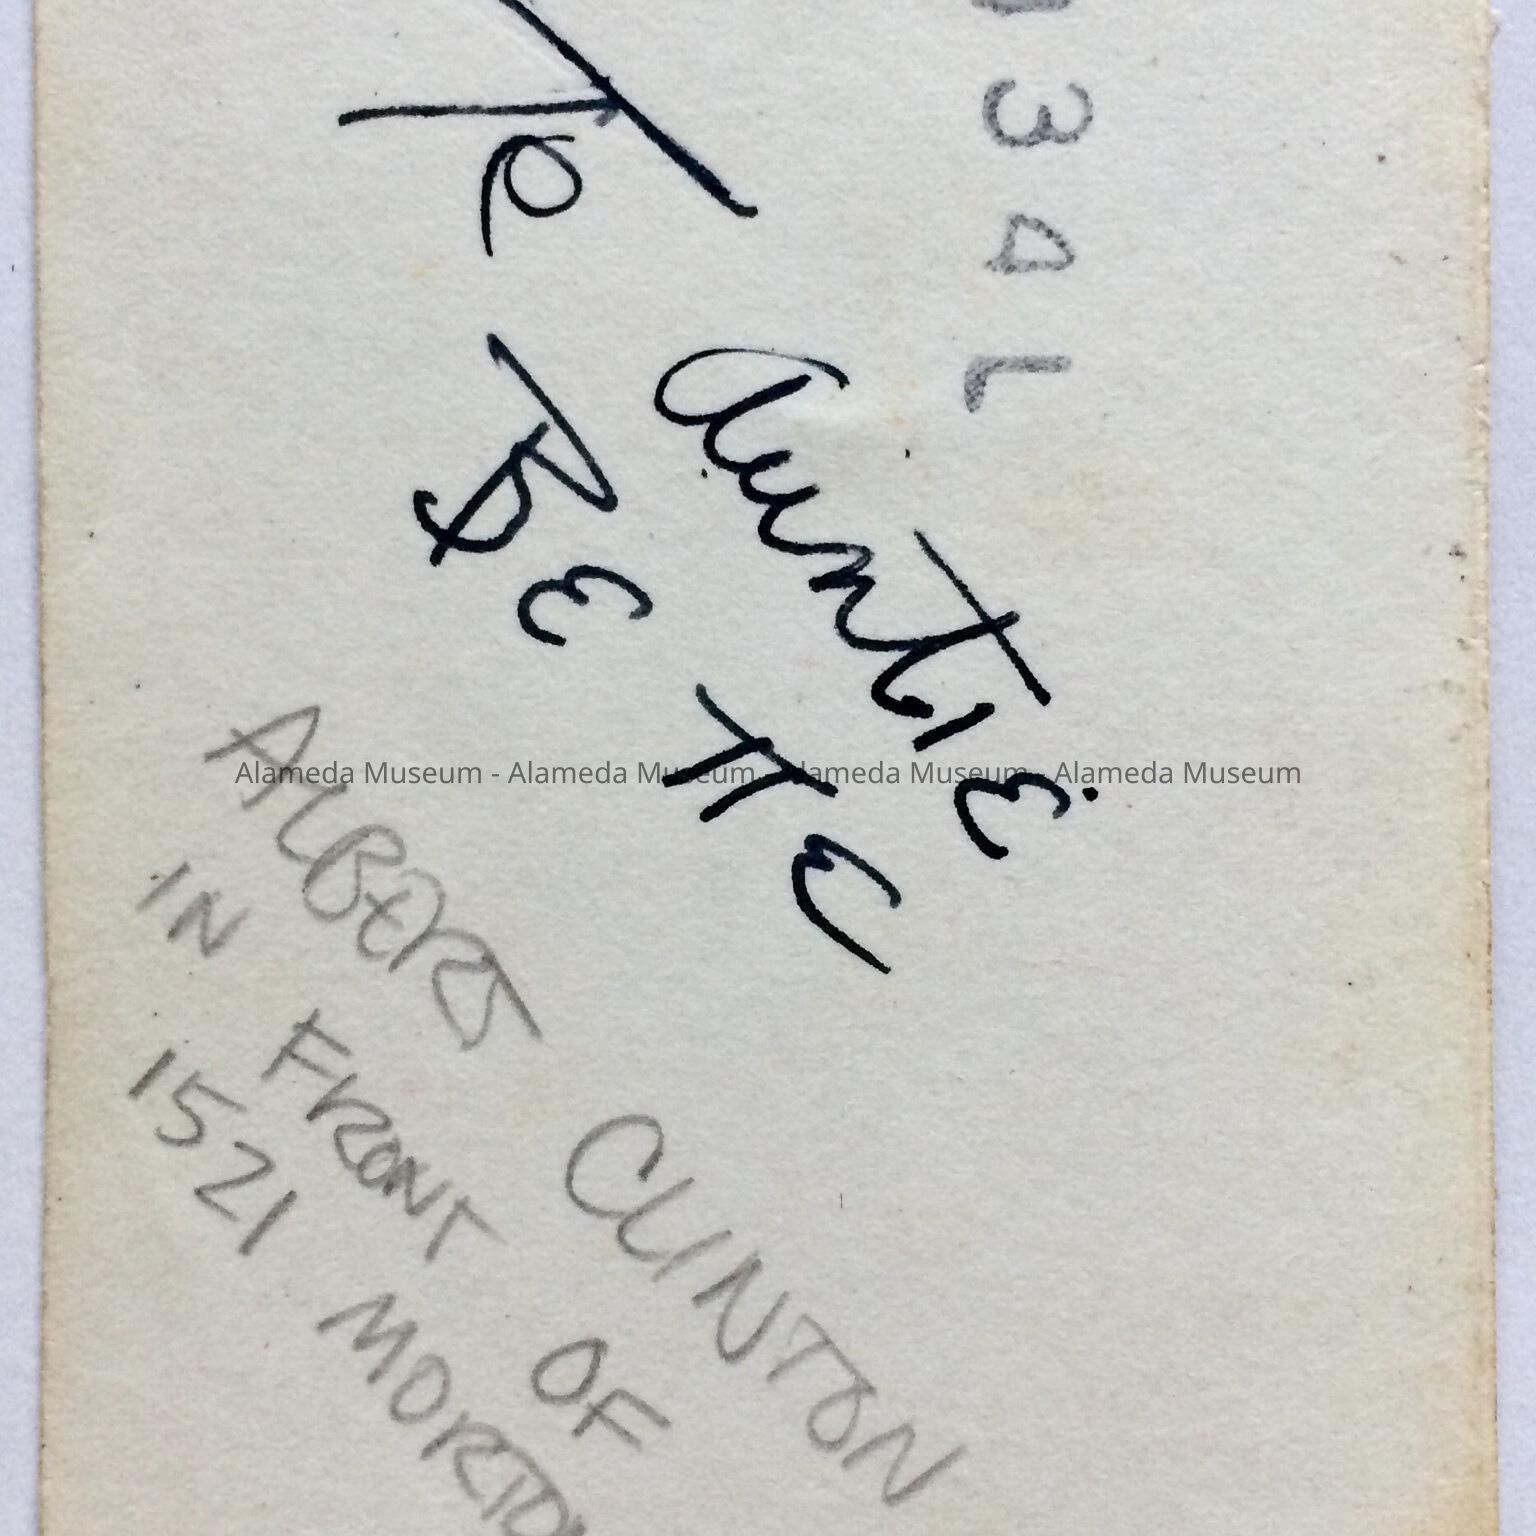 334L
To Auntie
BETTE
ALBERT CLINTON
IN FRONT OF
1521 MORTON
Alameda Museum - Alameda Museum - Alameda Museum - Alameda Museum